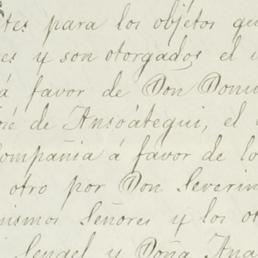 tes para los objetos que
es y son otorgados el
á favor de Don Dom
é de Ansoátegui, el
ompañia á favor de lo
otro por Don Severin
ismos Señores y los ot
Sengel y Doña Ana